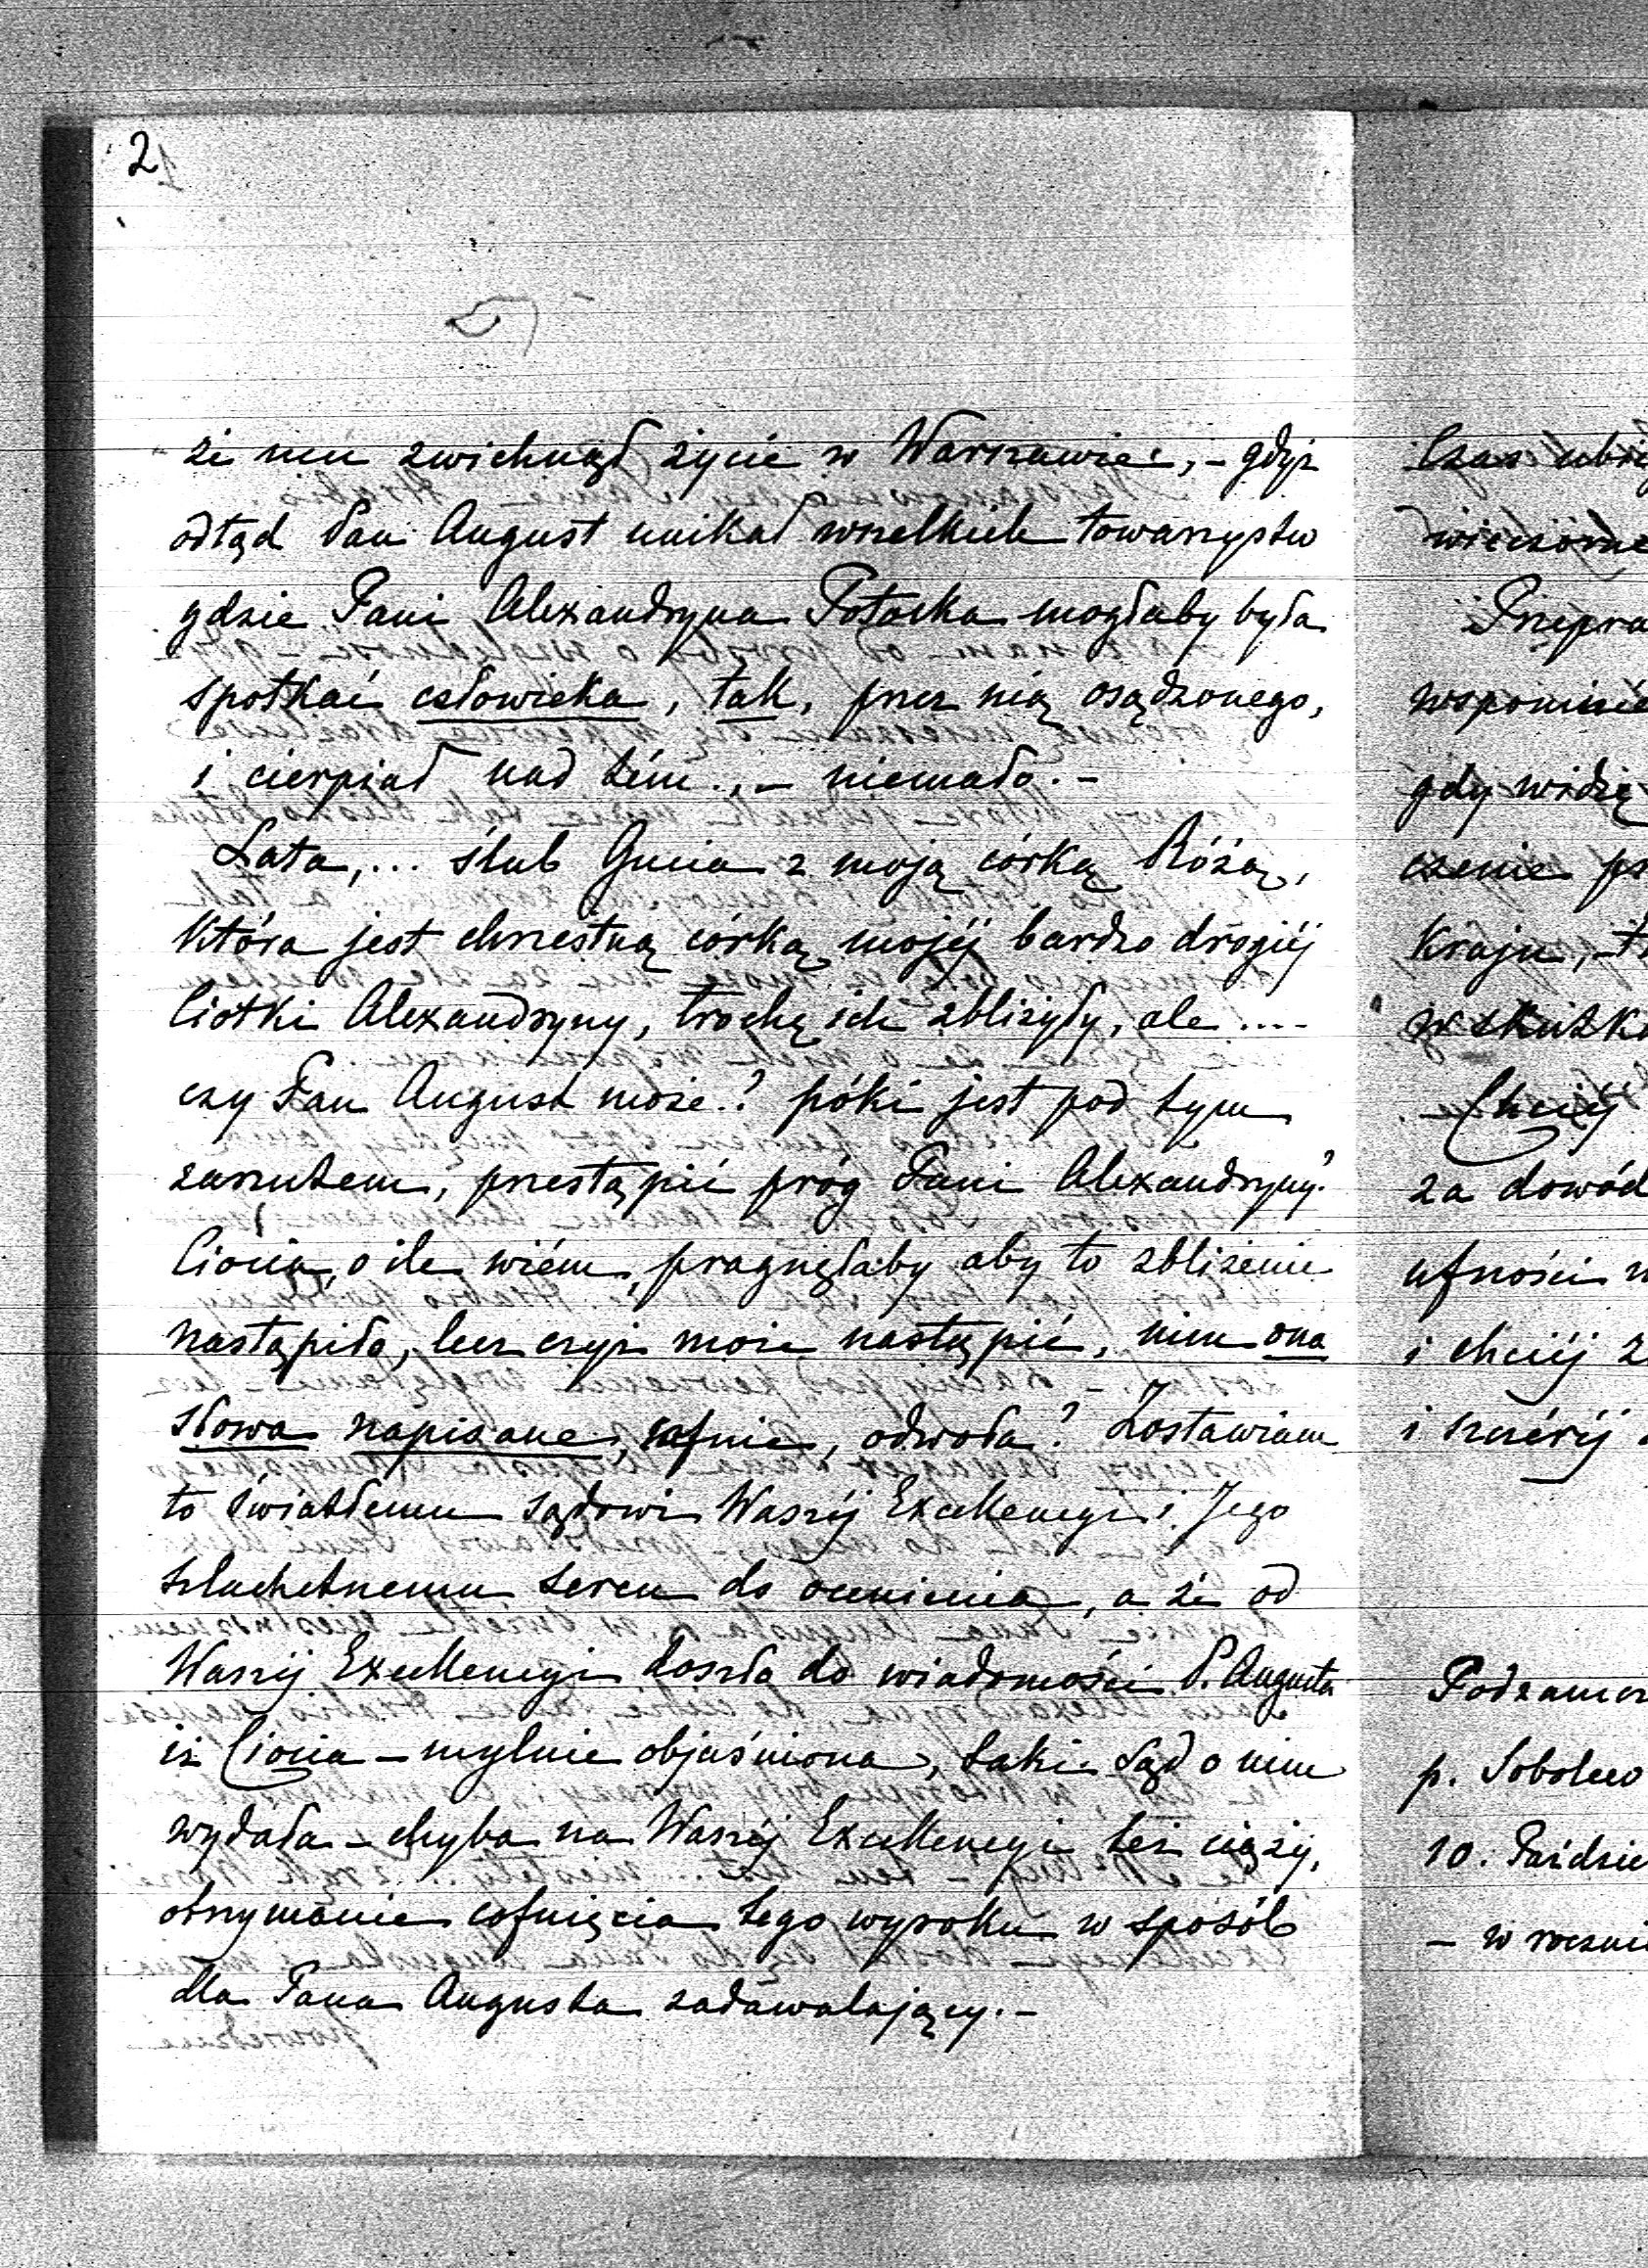 2
że mu zwichnął życie w Warszawie, – gdyż
odtąd Pan August unikał wszelkich towarzystw
gdzie Pani Alexandryna Potocka mogłaby była
spotkać człowieka, tak, przez nią osądzonego,
i cierpiał nad tém.. – niemało. –
Lata,... ślub Gucia z moją córką Różą,
która jest chrzestną córką mojéj bardzo drogiéj
Ciotki Alexandryny, trochę ich zbliżyły, ale ....
czy Pan August może? póki jest pod tym
zarzutem, przestąpić próg Pani Alexandryny?
Ciocia, o ile wiém, pragnęłaby aby to zbliżenie
nastąpiło, lecz czyż może nastąpić, nim ona
słowa napisane, cofnie, odwoła? Zostawiam
to światłemu sądowi Waszéj Excellencyi i Jego
szlachetnemu sercu do ocenienia, a że od
Waszéj Excellencyi doszło do wiadomości P. Augusta
iż Ciocia – mylnie objaśniona, taki sąd o nim
wydała – chyba na Waszéj Excellencyi też ciąży,
otrzymanie cofnięcia tego wyroku w sposób
dla Pana Augusta zadawalający. –
Czas
wieczorne
Przepra
wspomnie
gdy widzę
czenie
Kraju, –
w skutk
Chciéj
za dowód
ufności
i chciéj
i szczéréj
Podzamcz
p. Sobolew
10. Paździe
– w roczni